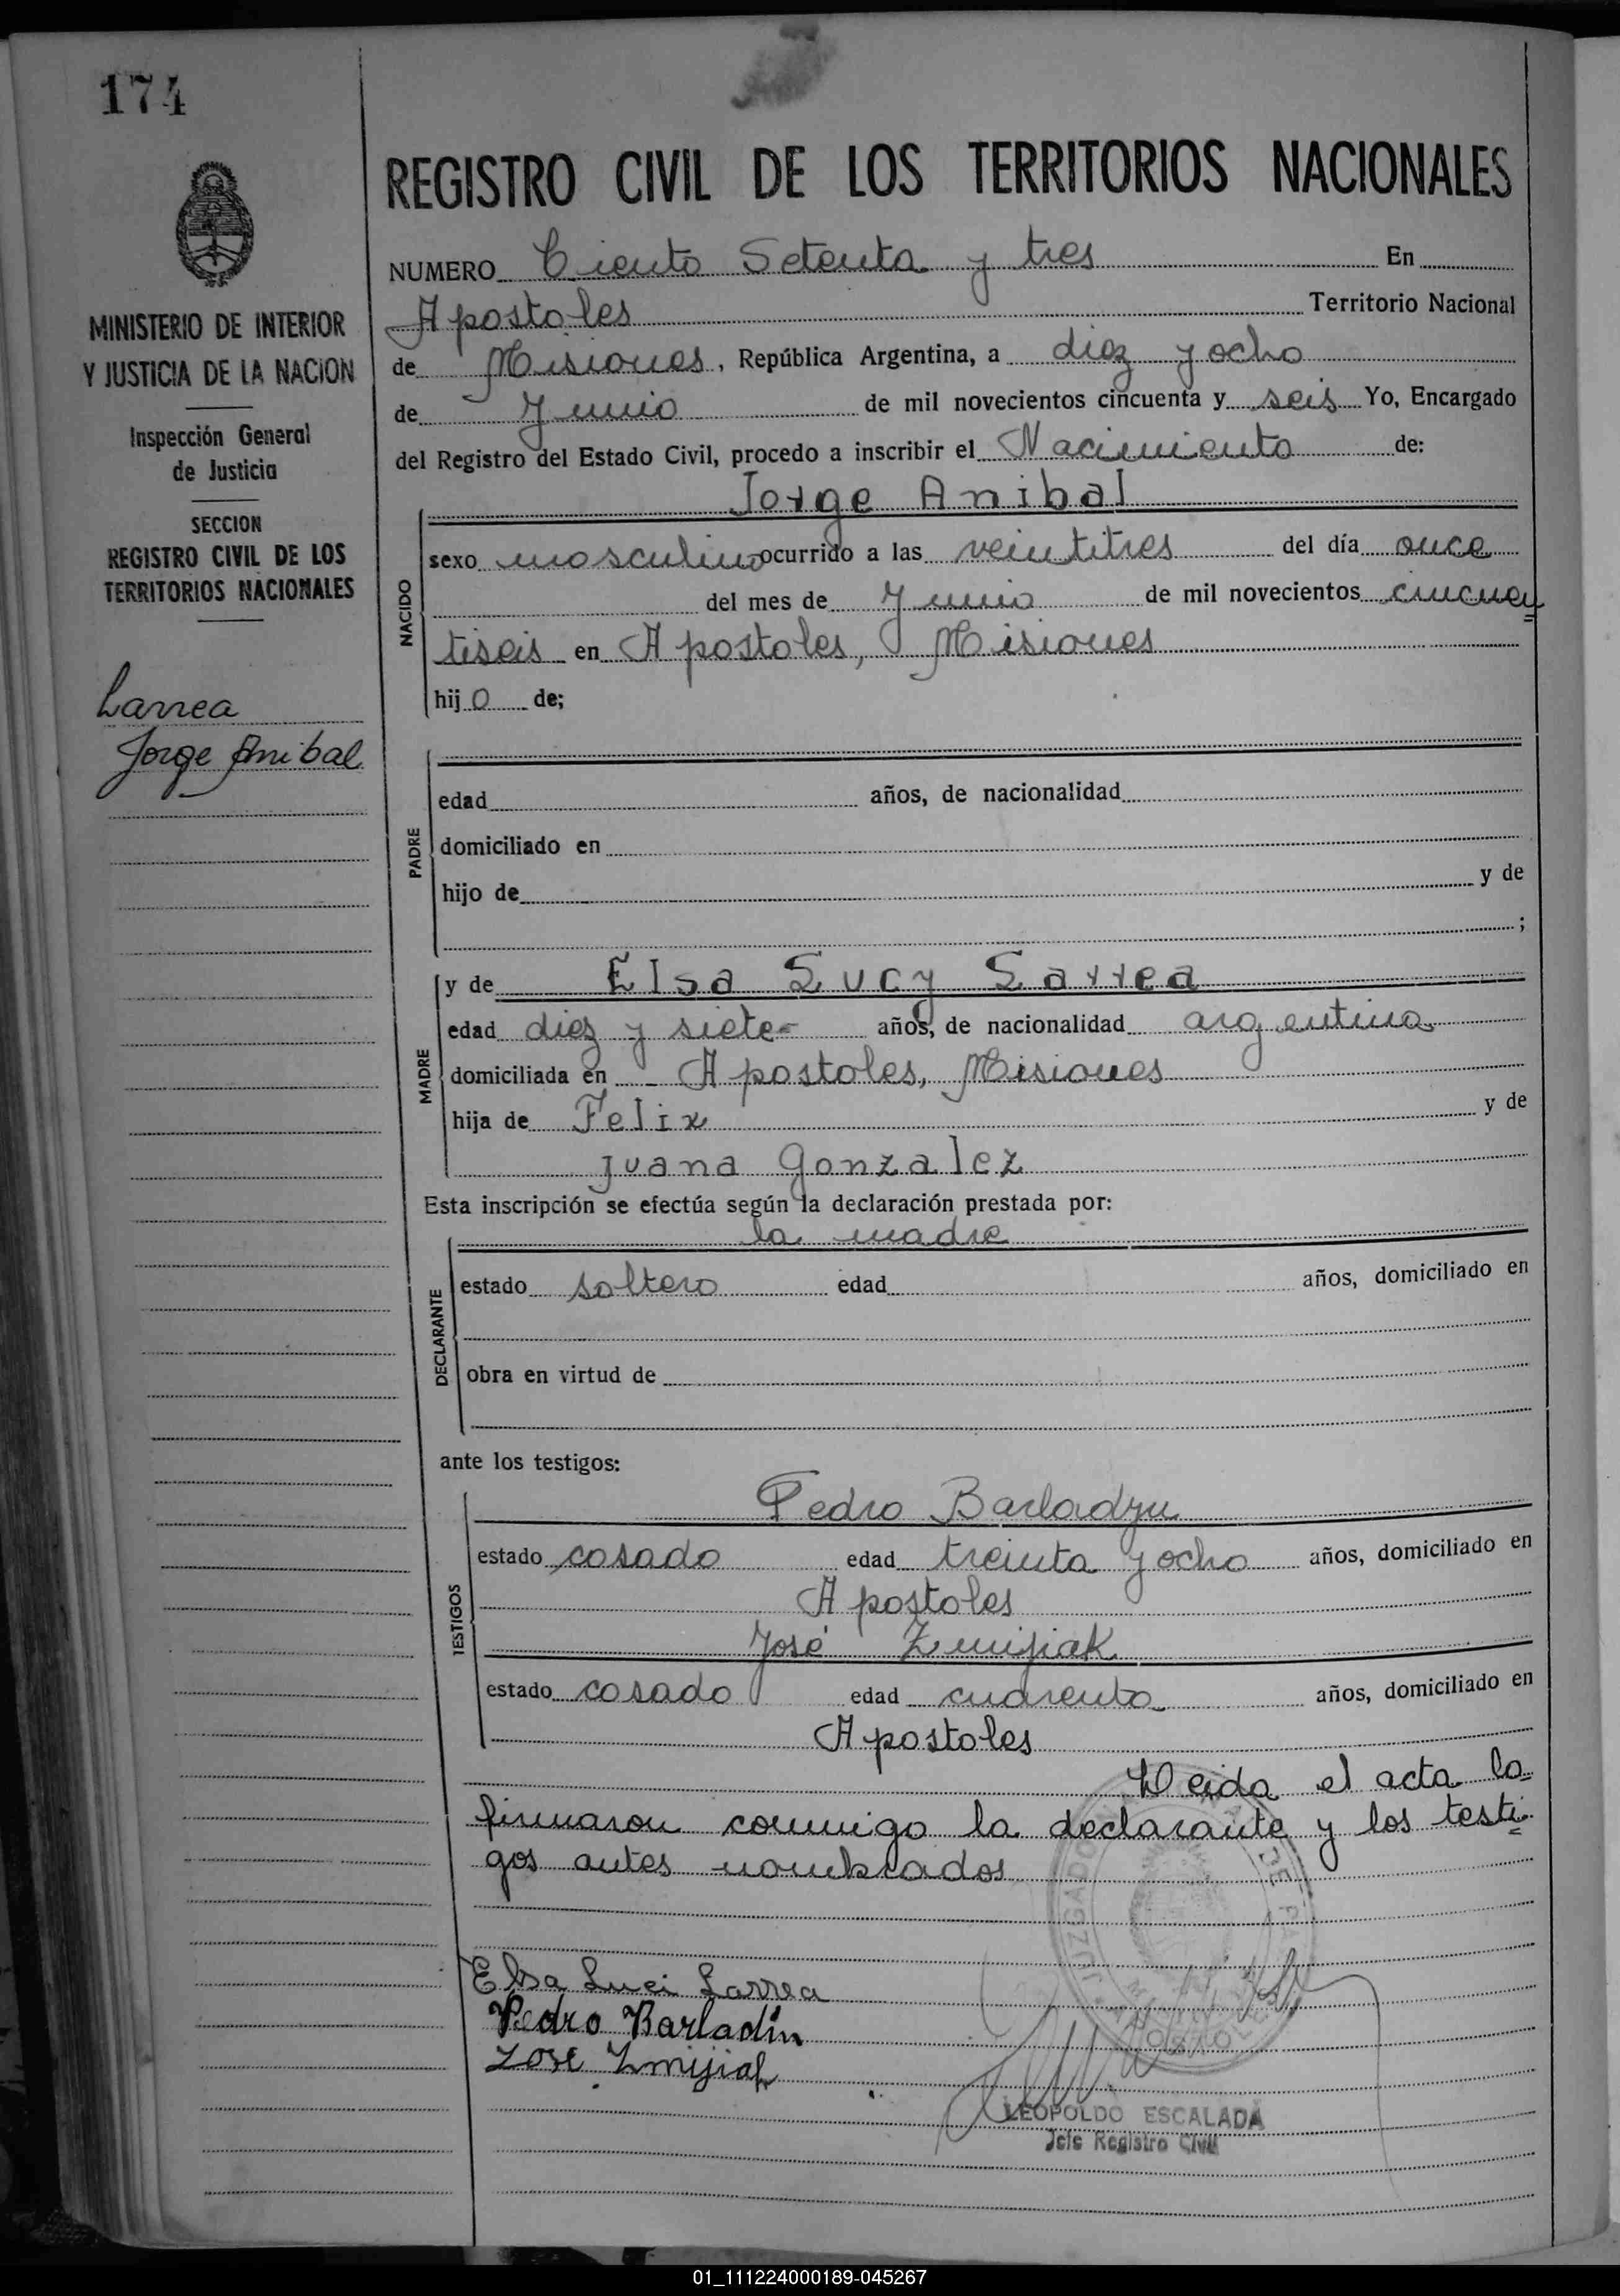 174
MINISTERIO DE INTERIOR
Y JUSTICIA DE LA NACION
Inspección General
de Justicia
SECCION
REGISTRO CIVIL DE LOS
TERRITORIOS NACIONALES
Larrea
Jorge Anibal
REGISTRO CIVIL DE LOS TERRITORIOS NACIONALES
NUMERO Ciento Setenta y tres En
Apostoles Territorio Nacional
de Misiones, República Argentina, a diez y ocho
de Junio de mil novecientos cincuenta y seis Yo, Encargado
del Registro del Estado Civil, procedo a inscribir el Nacimiento de:
Jorge Anibal
NACIDO
sexo masculino ocurrido a las veintitres del día once
del mes de Junio de mil novecientos cincuen
tiseis en Apostoles, Misiones
hijo de;
PADRE
edad años, de nacionalidad
domiciliado en
hijo de y de
;
MADRE
y de Elsa Lucy Larrea
edad diez y siete- años, de nacionalidad argentina
domiciliada en Apostoles, Misiones
hija de Felix y de
Juana Gonzalez
Esta inscripción se efectúa según la declaración prestada por:
la madre
DECLARANTE
estado soltera edad años, domiciliado en
obra en virtud de
ante los testigos:
TESTIGOS
Pedro Barladyn
estado casado edad treinta y ocho años, domiciliado en
Apostoles
José Zmijiak
estado casado edad cuarenta años, domiciliado en
Apostoles
Leida el acta la
firmaron conmigo la declarante y los testi
gos antes nombrados
Elsa Luci Larrea
Pedro Barladin
José Zmijiak
LEOPOLDO ESCALADA
Jefe Registro Civil
01_111224000189-045267